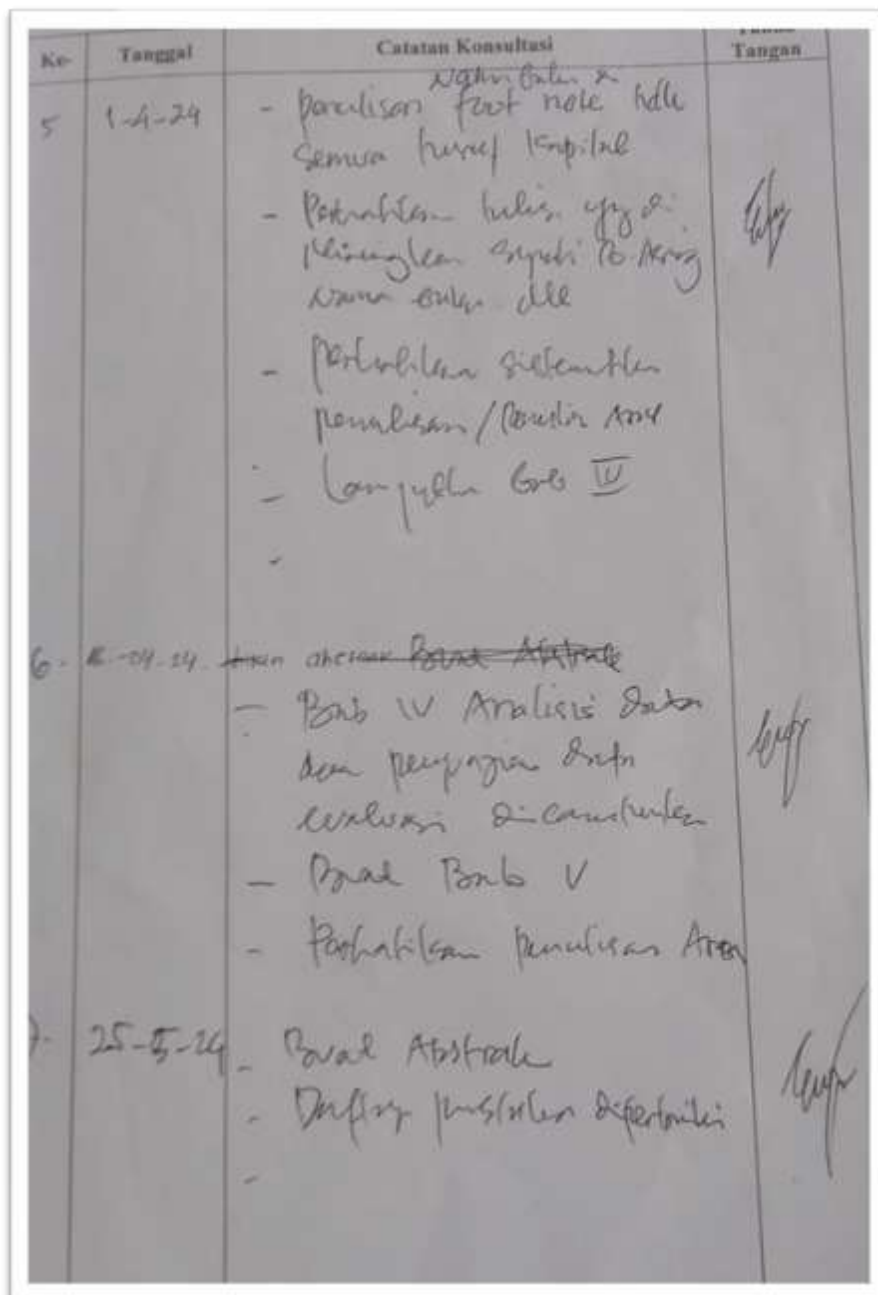 Ke- Tanggal Catatan Konsultasi Tanda Tangan
5 1-4-24 - penulisan foot note
semua huruf kapital
- Perhatikan tulisan yg di
miringkan seperti B. Asing
Nama buku dll
- perhatikan sistematika
penulisan /
- Lanjutkan Bab IV
-
6. -04-24 Buat Abstrak
- Bab IV Analisis data
dan penyajian data
evaluasi dicantumkan
- Buat Bab V
- Perhatikan penulisan Arab
7. 25-5-24 - Buat Abstrak
- Daftar pustaka diperbaiki
-